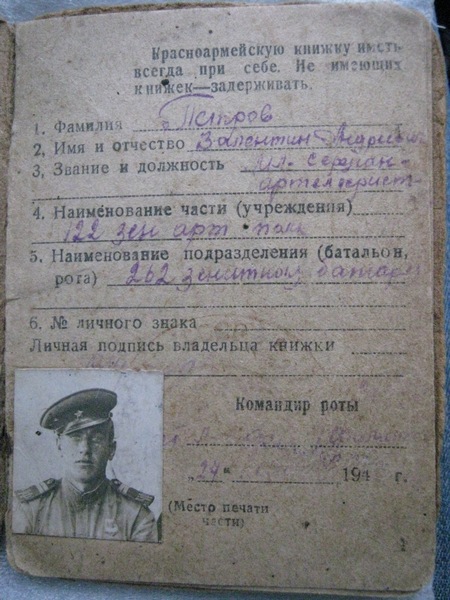 Красноармейскую книжку иметь
всегда при себе. Не имеющих
книжек—задерживать.
1. Фамилия Петров
2. Имя и отчество Валентин
3. Звание и должность мл. сержан-
артелерист
4. Наименование части (учреждения)
122 зен арт полк
5. Наименование подразделения (батальон,
рота) 262 зенитной
6. № личного знака
Личная подпись владельца книжки
Командир роты
„24" 194 г.
(Место печати
части)
1